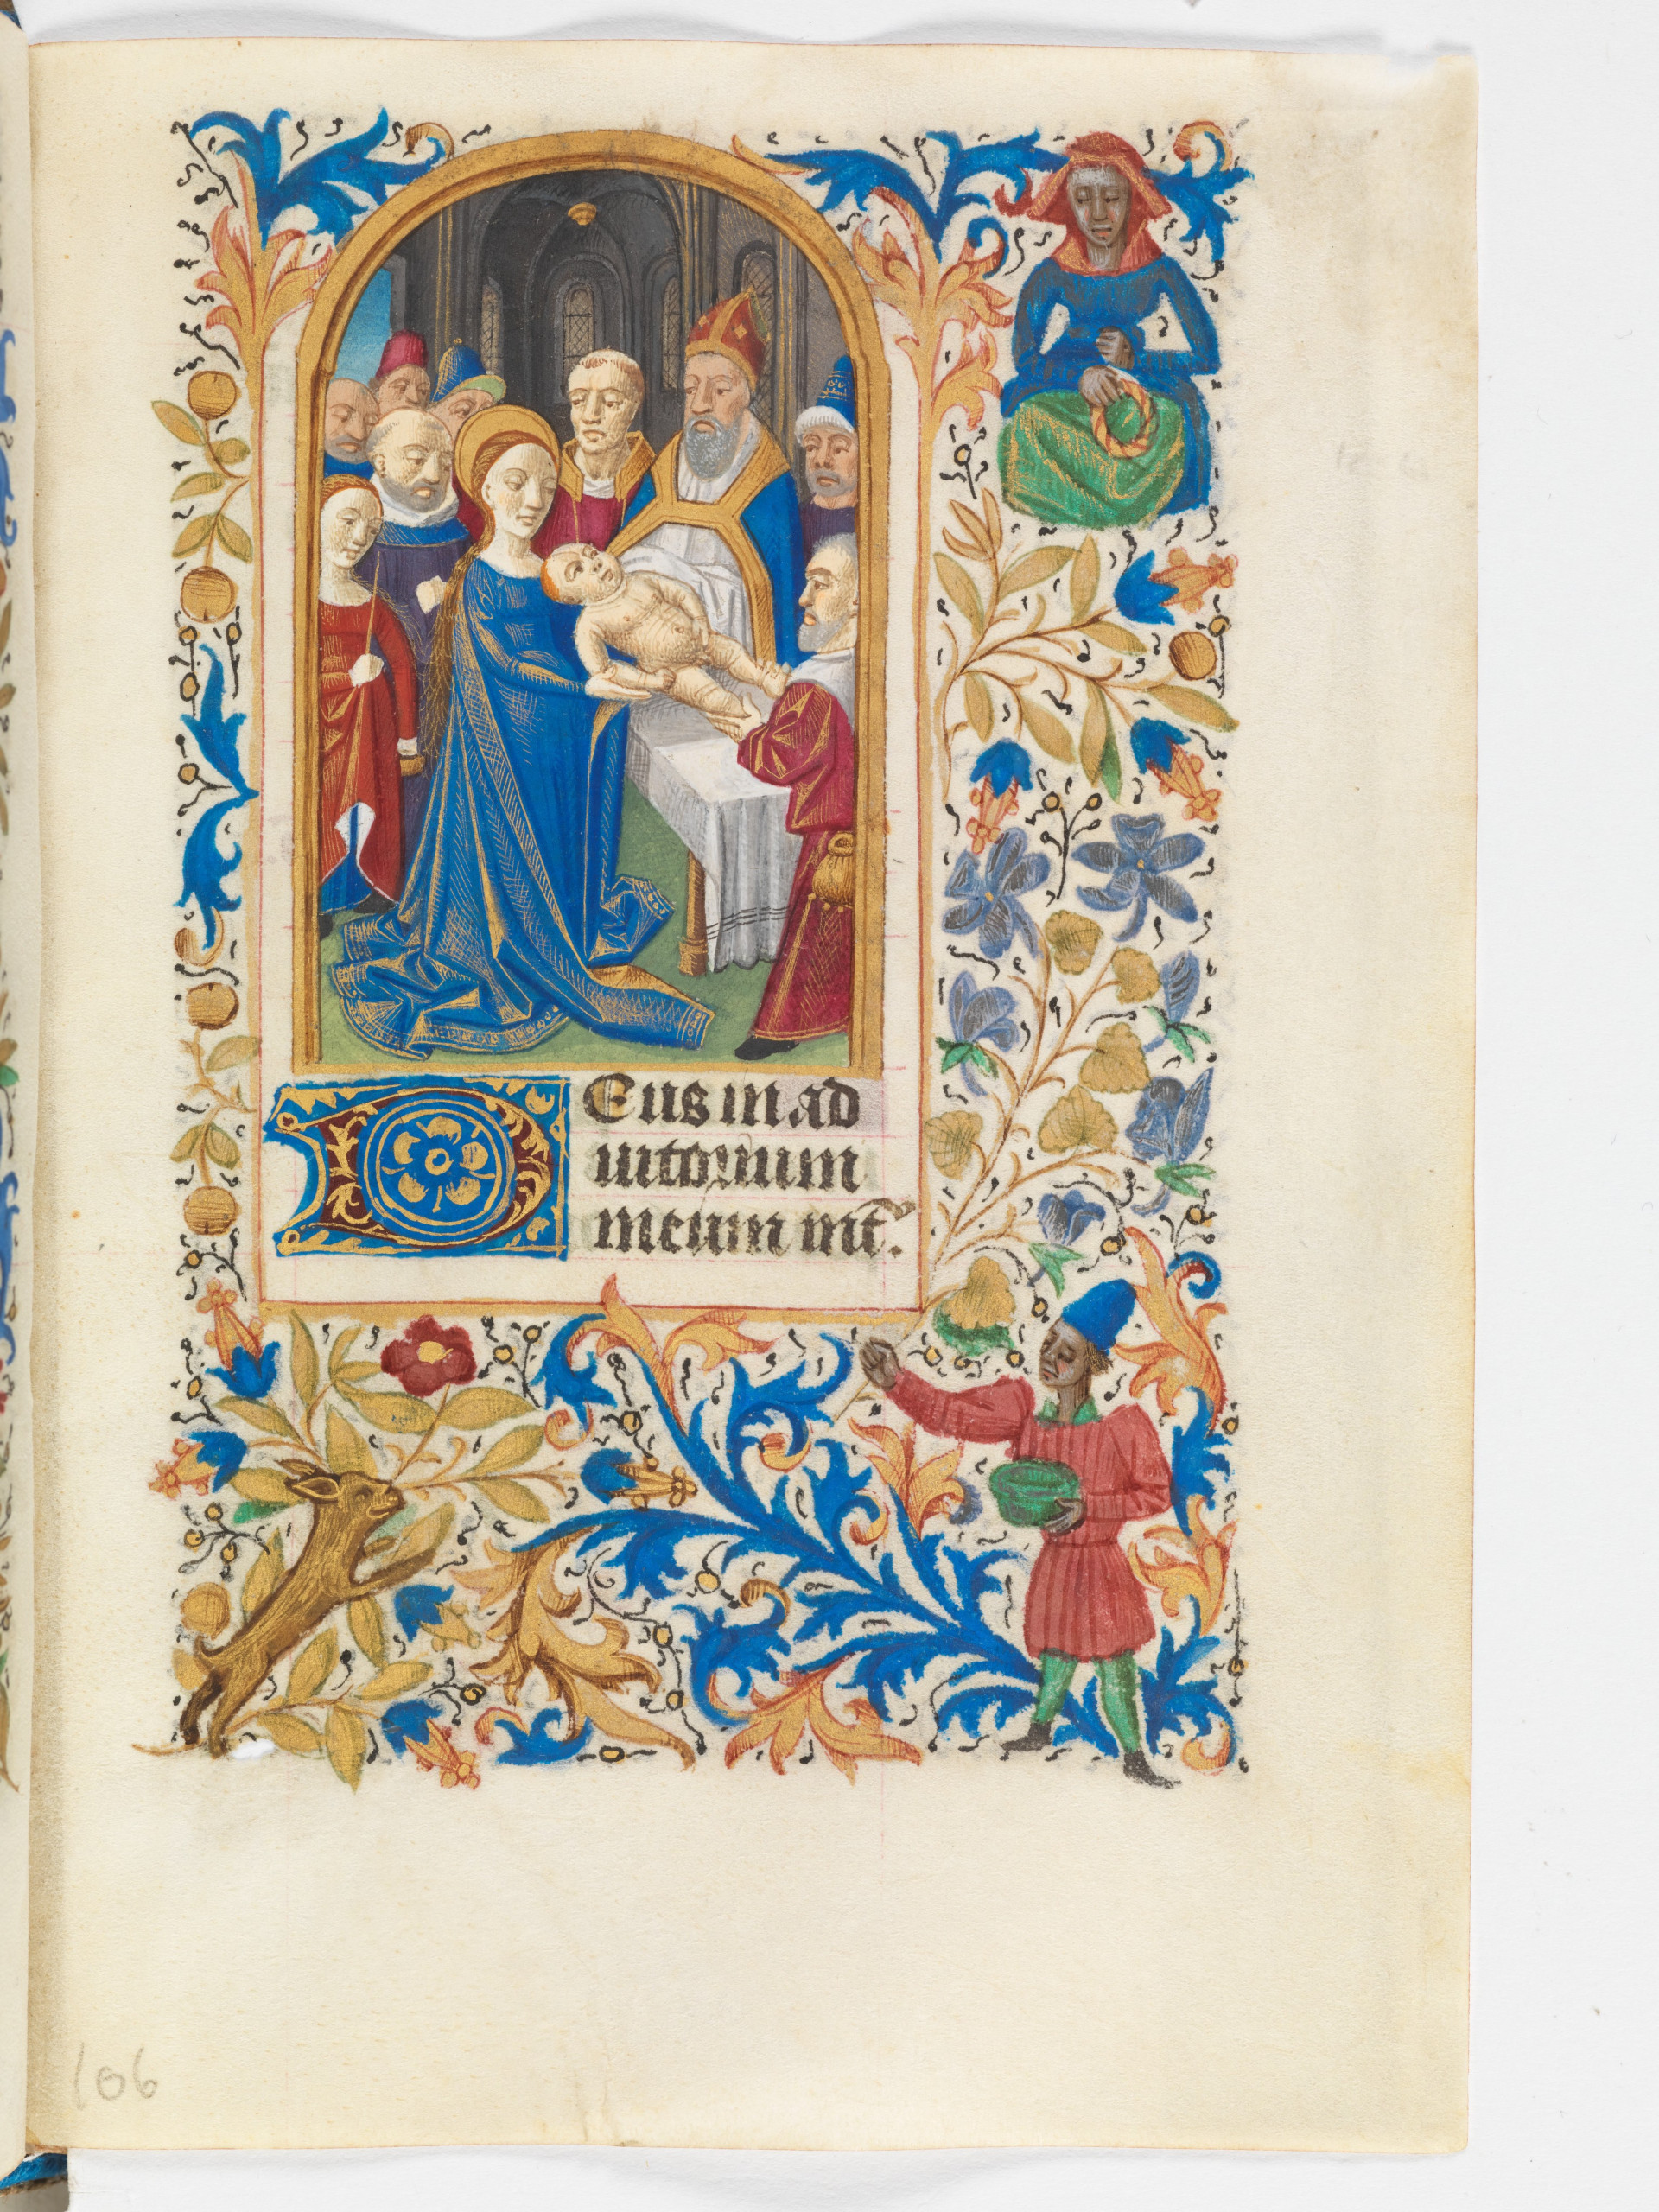 Deus in ad
iutorium
meum int̄.
106